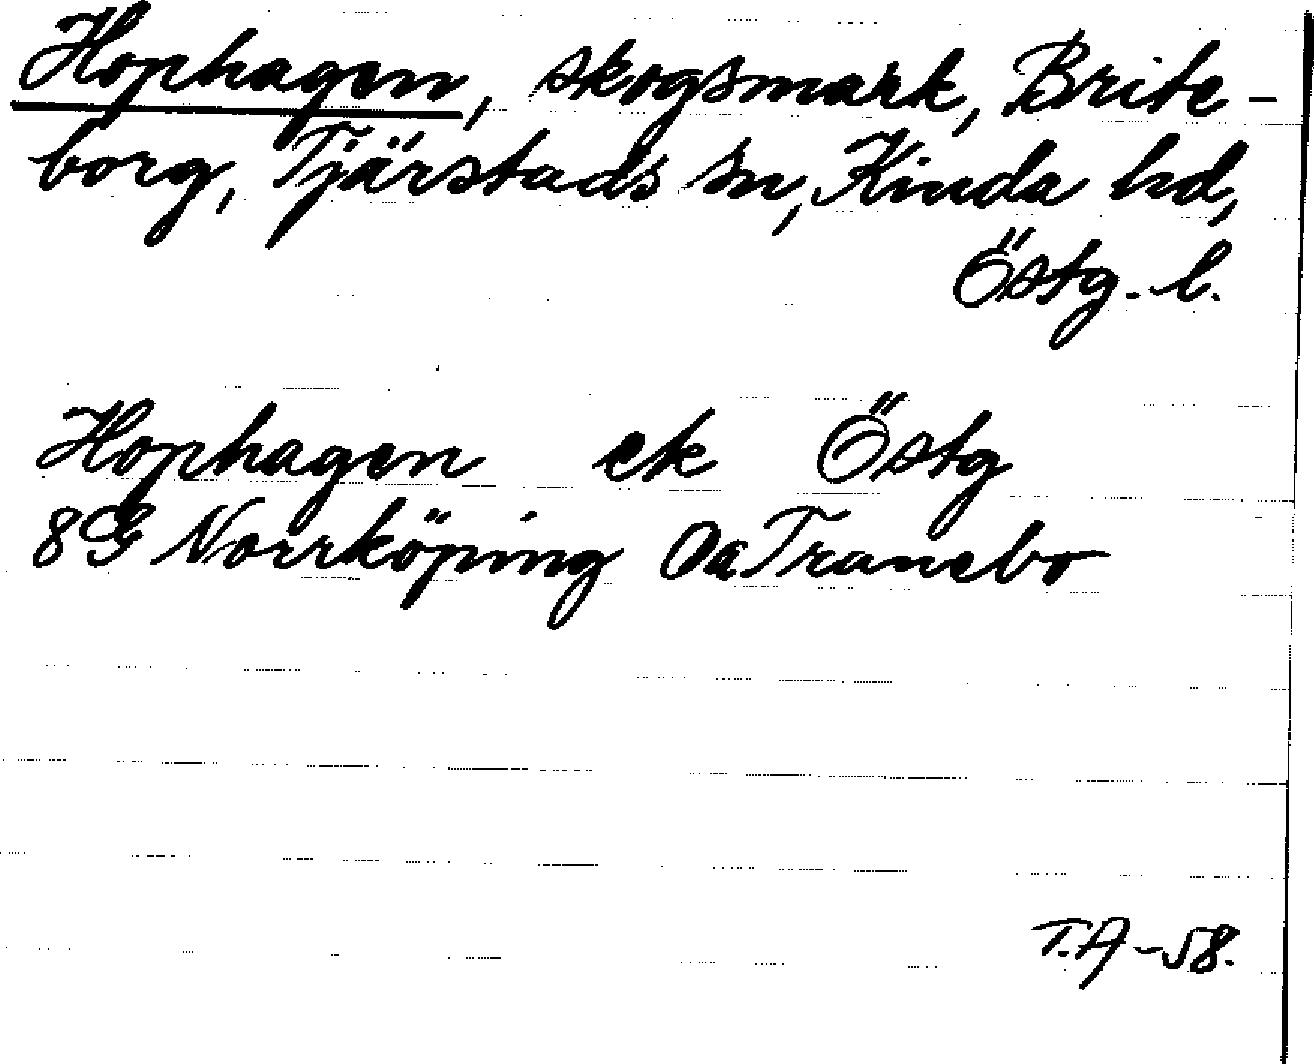 Hophagen, skogsmark, Brite-
borg, Tjärstads sn, Kinda hd,
Östg. l.
Hophagen ek Östg
8G Norrköping Oa Tranebo
T.A-58.